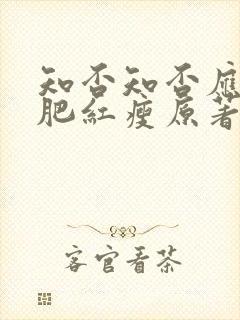 知否知否應
肥紅瘦原著
客官看茶